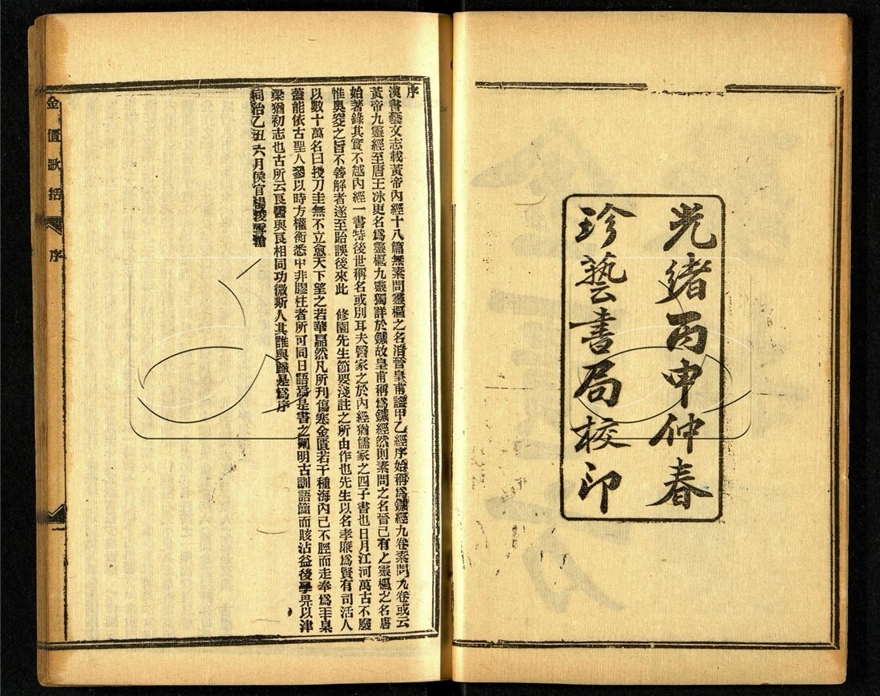 光緒丙申仲春
珍藝書局校印
序
漢書藝文志載黃帝內經十八篇無素問靈樞之名洎晉皇甫謐甲乙經序始稱為鍼經九卷素問九卷或云
黃帝九靈經至唐王冰更名為靈樞九靈獨詳於鍼故皇甫稱為鍼經然則素問之名晉已有之靈樞之名唐
始著錄其實不越內經一書特後世稱名或別耳夫醫家之於內經猶儒家之四子書也日月江河萬古不廢
惟奧窔之旨不善解者遂至貽誤後來此 修園先生節要淺註之所由作也先生以名孝廉為賢有司活人
以數十萬名曰授刀圭無不立愈天下望之若華扁然凡所刊傷寒金匱若干種海內已不脛而走奉為圭臬
蓋能依古聖人以時方權衡悉中非膠柱者所可同日語焉是書之闡明古訓語簡而賅沾益後學畀以津
梁猶初志也古所云良醫與良相同功微斯人其誰與歸是為序
同治乙丑六月侯官楊浚雪滄
金匱歌括
序
一